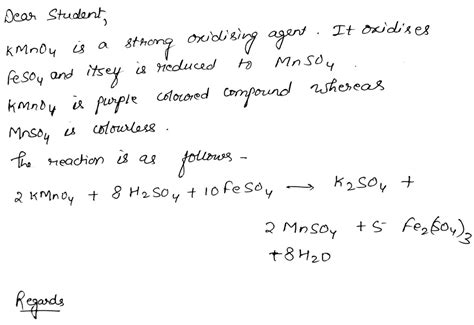 Dear Student,
KMnO4 is a strong oxidising agent. It oxidises
FeSO4 and itself is reduced to MnSO4.
KMnO4 is purple coloured compound whereas
MnSO4 is colourless.
The reaction is as follows -
2 KMnO4 + 8 H2SO4 + 10 FeSO4 → K2SO4 +
2 MnSO4 + 5 Fe2(SO4)3
+ 8H2O
Regards